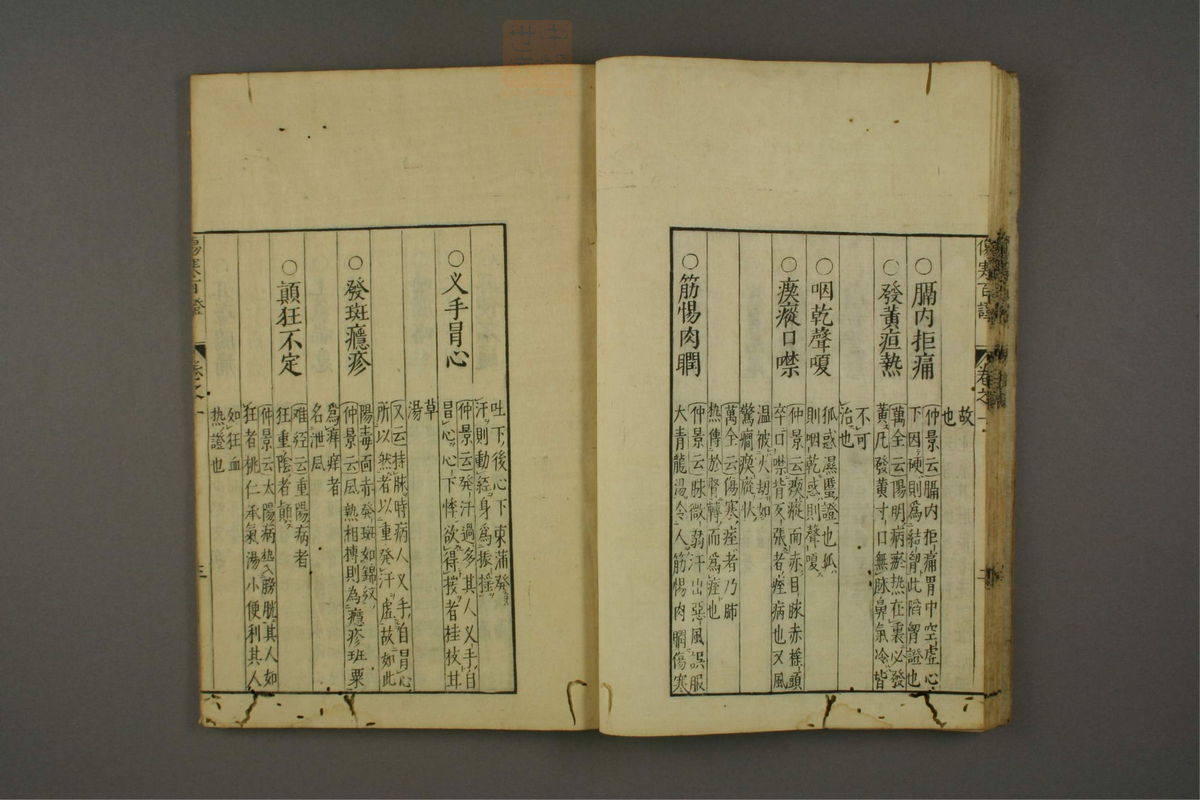 故
也
○膈内拒痛
仲景云膈内拒痛胃中空虛心
下因硬則為結胷此陷胷證也
○發黃疸熱
萬全云陽明病瘀热在裏必發
黃凡發黄寸口無脉鼻氣冷皆
不可
治也
○咽乾聲嗄
狐惑濕䘌證也狐
則咽乾惑則聲嗄
○瘈瘲口噤
仲景云瘈瘲面赤目脉赤搖頭
卒口噤背反張者痓病也又風
温被火刼如
驚癇瘈瘲状
萬全云傷寒痓者乃肺
熱傳於腎轉而為痓也
○筋惕肉瞤
仲景云脉微弱汗出惡風誤服
大青龍湯令人筋惕肉瞤傷寒
傷寒百證
卷之一
吐下後心下
發
汗則動經身為振揺
○义手冒心
仲景云發汗過多其人义手自
冒心心下悸欲得按者桂枝甘
草
湯
又云持脉時病人义手自冒心
所以然者以重發汗虛故如此
○發斑癮疹
陽毒面赤發斑如錦紋
仲景云風熱相摶則為癮疹斑粟
為癢痒者
名泄风
○顛狂不定
难经云重陽病者
狂重陰者顛
仲景云太陽病热入膀胱其人如
狂者桃仁承氣湯小便利其人
如狂血
热證也
傷寒百證
卷之一
三